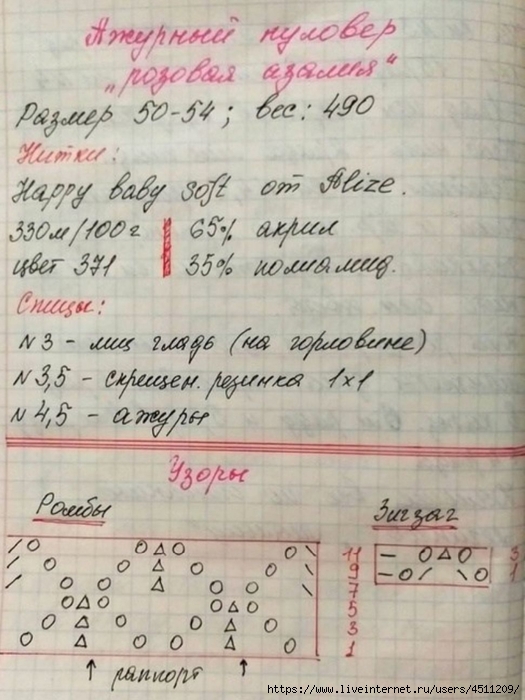 Ажурный пуловер
„розовая азалия“
Размер 50-54; вес: 490
Нитки:
Happy baby soft от Alize.
330м/100г | 65% акрил
цвет 371 | 35% полиамид.
Спицы:
N 3 - лиц гладь (на горловине)
N 3,5 - скрещен. резинка 1x1
N 4,5 - ажуры
Узоры
Ромбы
Зигзаг
11
9
7
5
3
1
3
1
↑ раппорт ↑
https://www.liveinternet.ru/users/4511209/